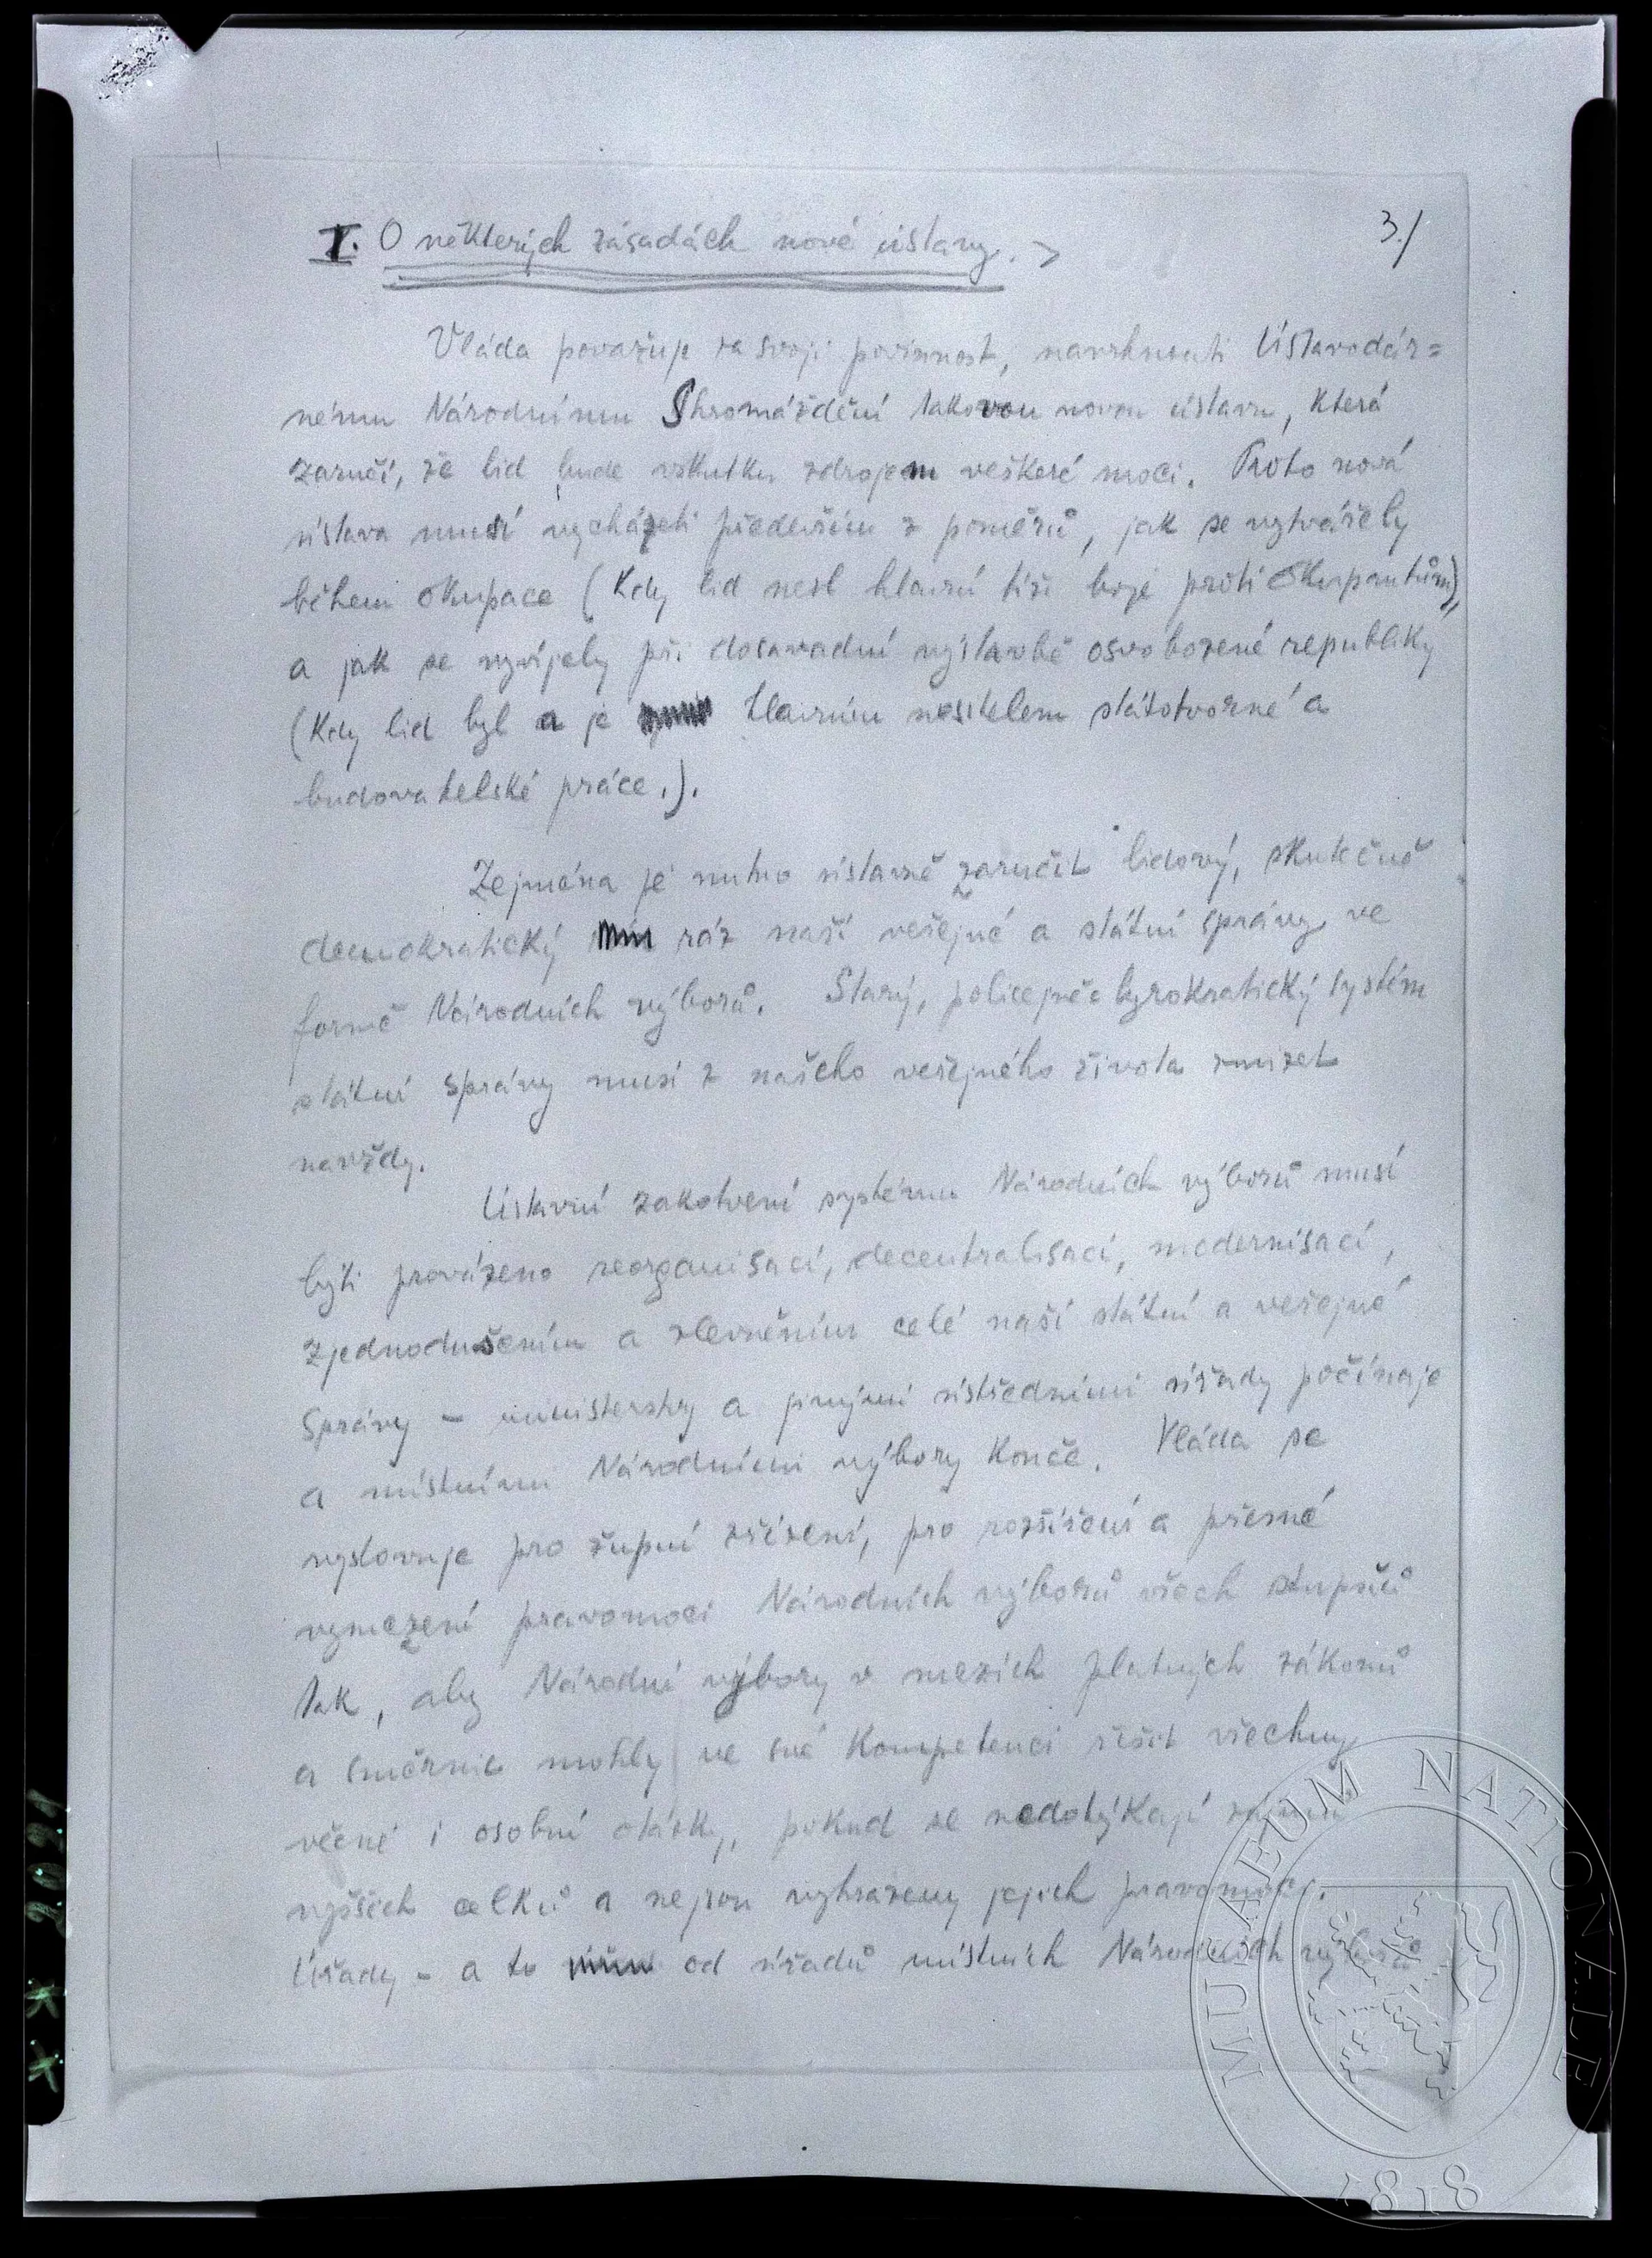 I. O některých zásadách nové ústavy. >
3./
Vláda považuje za svoji povinnost, navrhnouti Ústavodár=
nému Národnímu Shromáždění takovou novou ústavu, která
zaručí, že lid bude vskutku zdrojem veškeré moci. Proto nová
ústava musí vycházeti především z poměrů, jak se vytvářely
během okupace (kdy lid nesl hlavní tíži boje proti okupantům),
a jak se vyvíjely při dosavadní výstavbě osvobozené republiky
(kdy lid byl a je hlavním nositelem státotvorné a
budovatelské práce.).
Zejména je nutno ústavně zaručit lidový, skutečně
demokratický ráz naší veřejné a státní správy ve
formě Národních výborů. Starý, policejně byrokratický systém
státní správy musí z našeho veřejného života zmizet
navždy.
Ústavní zakotvení systému Národních výborů musí
býti provázeno reorganisací, decentralisací, modernisací,
zjednodušením a zlevněním celé naší státní a veřejné
správy – ministerstvy a jinými ústředními úřady počínaje
a místními Národními výbory konče. Vláda se
vyslovuje pro župní zřízení, pro rozšíření a přesné
vymezení pravomoci Národních výborů všech stupňů
tak, aby Národní výbory v mezích platných zákonů
a směrnic mohly ve své kompetenci řešit všechny
věcné i osobní otázky, pokud se nedotýkají zájmů
vyšších celků a nejsou vyhrazeny jejich pravomoci.
Úřady – a to od úřadů místních Národních výborů
MUSAEUM NATIONALE
1818